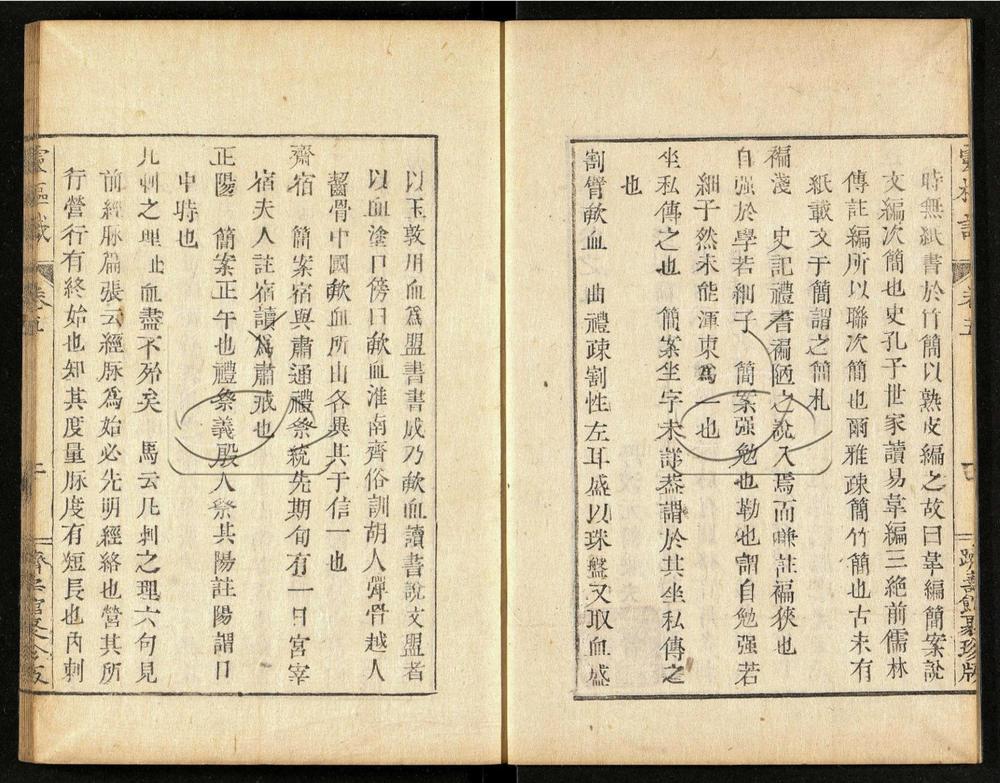 時無紙書於竹簡以熟皮編之故曰韋編簡案說
文編次簡也史孔子世家讀易韋編三絶前儒林
傳註編所以聯次簡也爾雅疎簡竹簡也古未有
紙載文于簡謂之簡札
褊淺　史記禮書褊陋之說入焉而嗛註褊狹也
自强於學若細子　簡案强勉也勒也謂自勉强若
細子然未能渾束爲一也
坐私傳之也　簡案坐字未詳葢謂於其坐私傳之
也
割臂歃血　曲禮疎割牲左耳盛以珠盤又取血盛
以玉敦用血爲盟書書成乃歃血讀書說文盟者
以血塗口傍曰歃血淮南齊俗訓胡人彈骨越人
齧骨中國歃血所由各異其于信一也
齋宿　簡案宿與肅通禮祭統先期旬有一日宮宰
宿夫人註宿讀爲肅戒也
正陽　簡案正午也禮祭義殷人祭其陽註陽謂日
中時也
凡刺之理止血盡不殆矣　馬云凡刺之理六句見
前經脉篇張云經脉爲始必先明經絡也營其所
行營行有終始也知其度量脉度有短長也內刺
卷五
躋壽館聚珍版